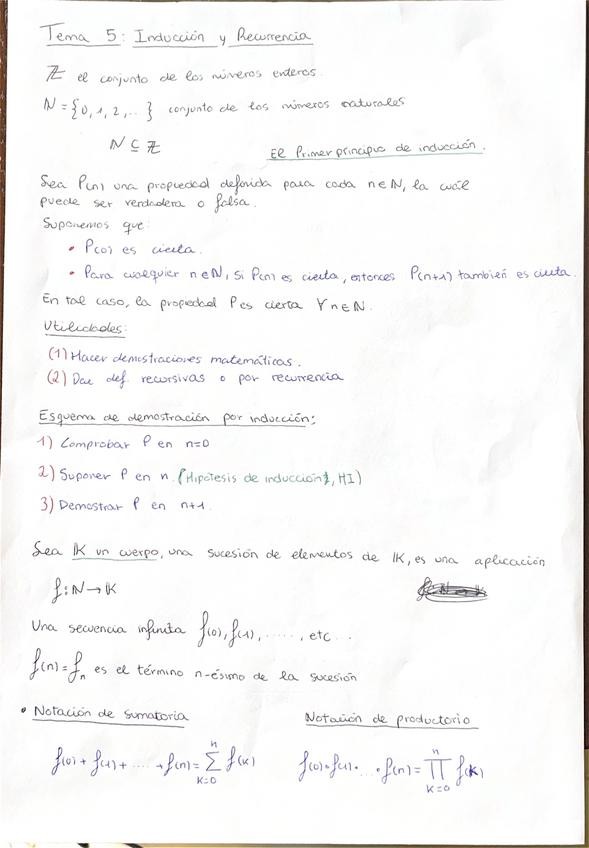 Tema 5: Inducción y Recurrencia
ℤ el conjunto de los números enteros.
N = {0, 1, 2, ...} conjunto de los números naturales
N ⊆ ℤ
El Primer principio de inducción.
Sea P(n) una propiedad definida para cada n∈N, la cuál
puede ser verdadera o falsa.
Suponemos que:
• P(0) es cierta.
• Para cualquier n∈N, si P(n) es cierta, entonces P(n+1) también es cierta.
En tal caso, la propiedad P es cierta ∀n∈N.
Utilidades:
(1) Hacer demostraciones matemáticas.
(2) Dar def. recursivas o por recurrencia
Esquema de demostración por inducción:
1) Comprobar P en n=0
2) Suponer P en n (Hipótesis de inducción, HI)
3) Demostrar P en n+1.
Sea K un cuerpo, una sucesión de elementos de K, es una aplicación
f: N → K
Una secuencia infinita f(0), f(1), ......, etc...
f(n) = fₙ es el término n-ésimo de la sucesión
• Notación de sumatoria
Notación de productorio
f(0) + f(1) + ..... + f(n) = ∑_{K=0}^{n} f(K)
f(0) · f(1) · ... · f(n) = ∏_{K=0}^{n} f(K)